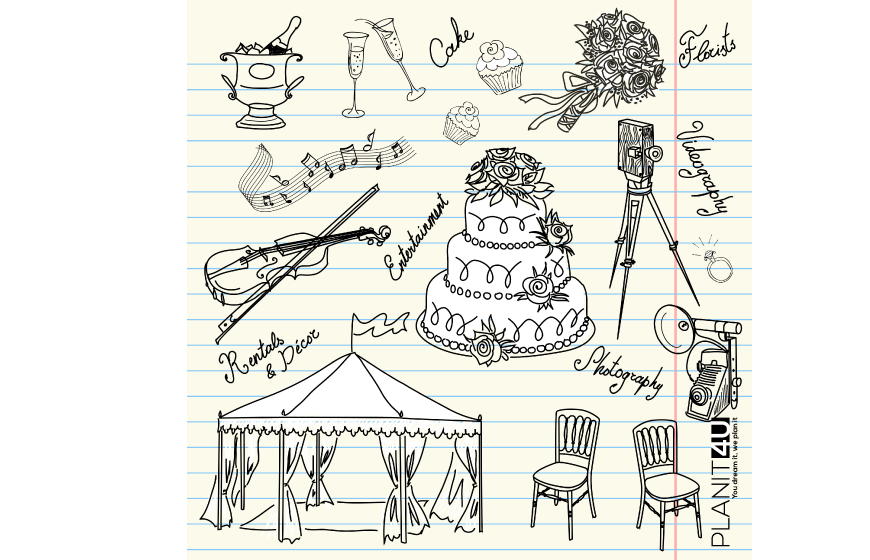 Cake
Florists
Videography
Entertainment
Rentals
& Décor
Photography
PLANIT4U
You dream it, we plan it